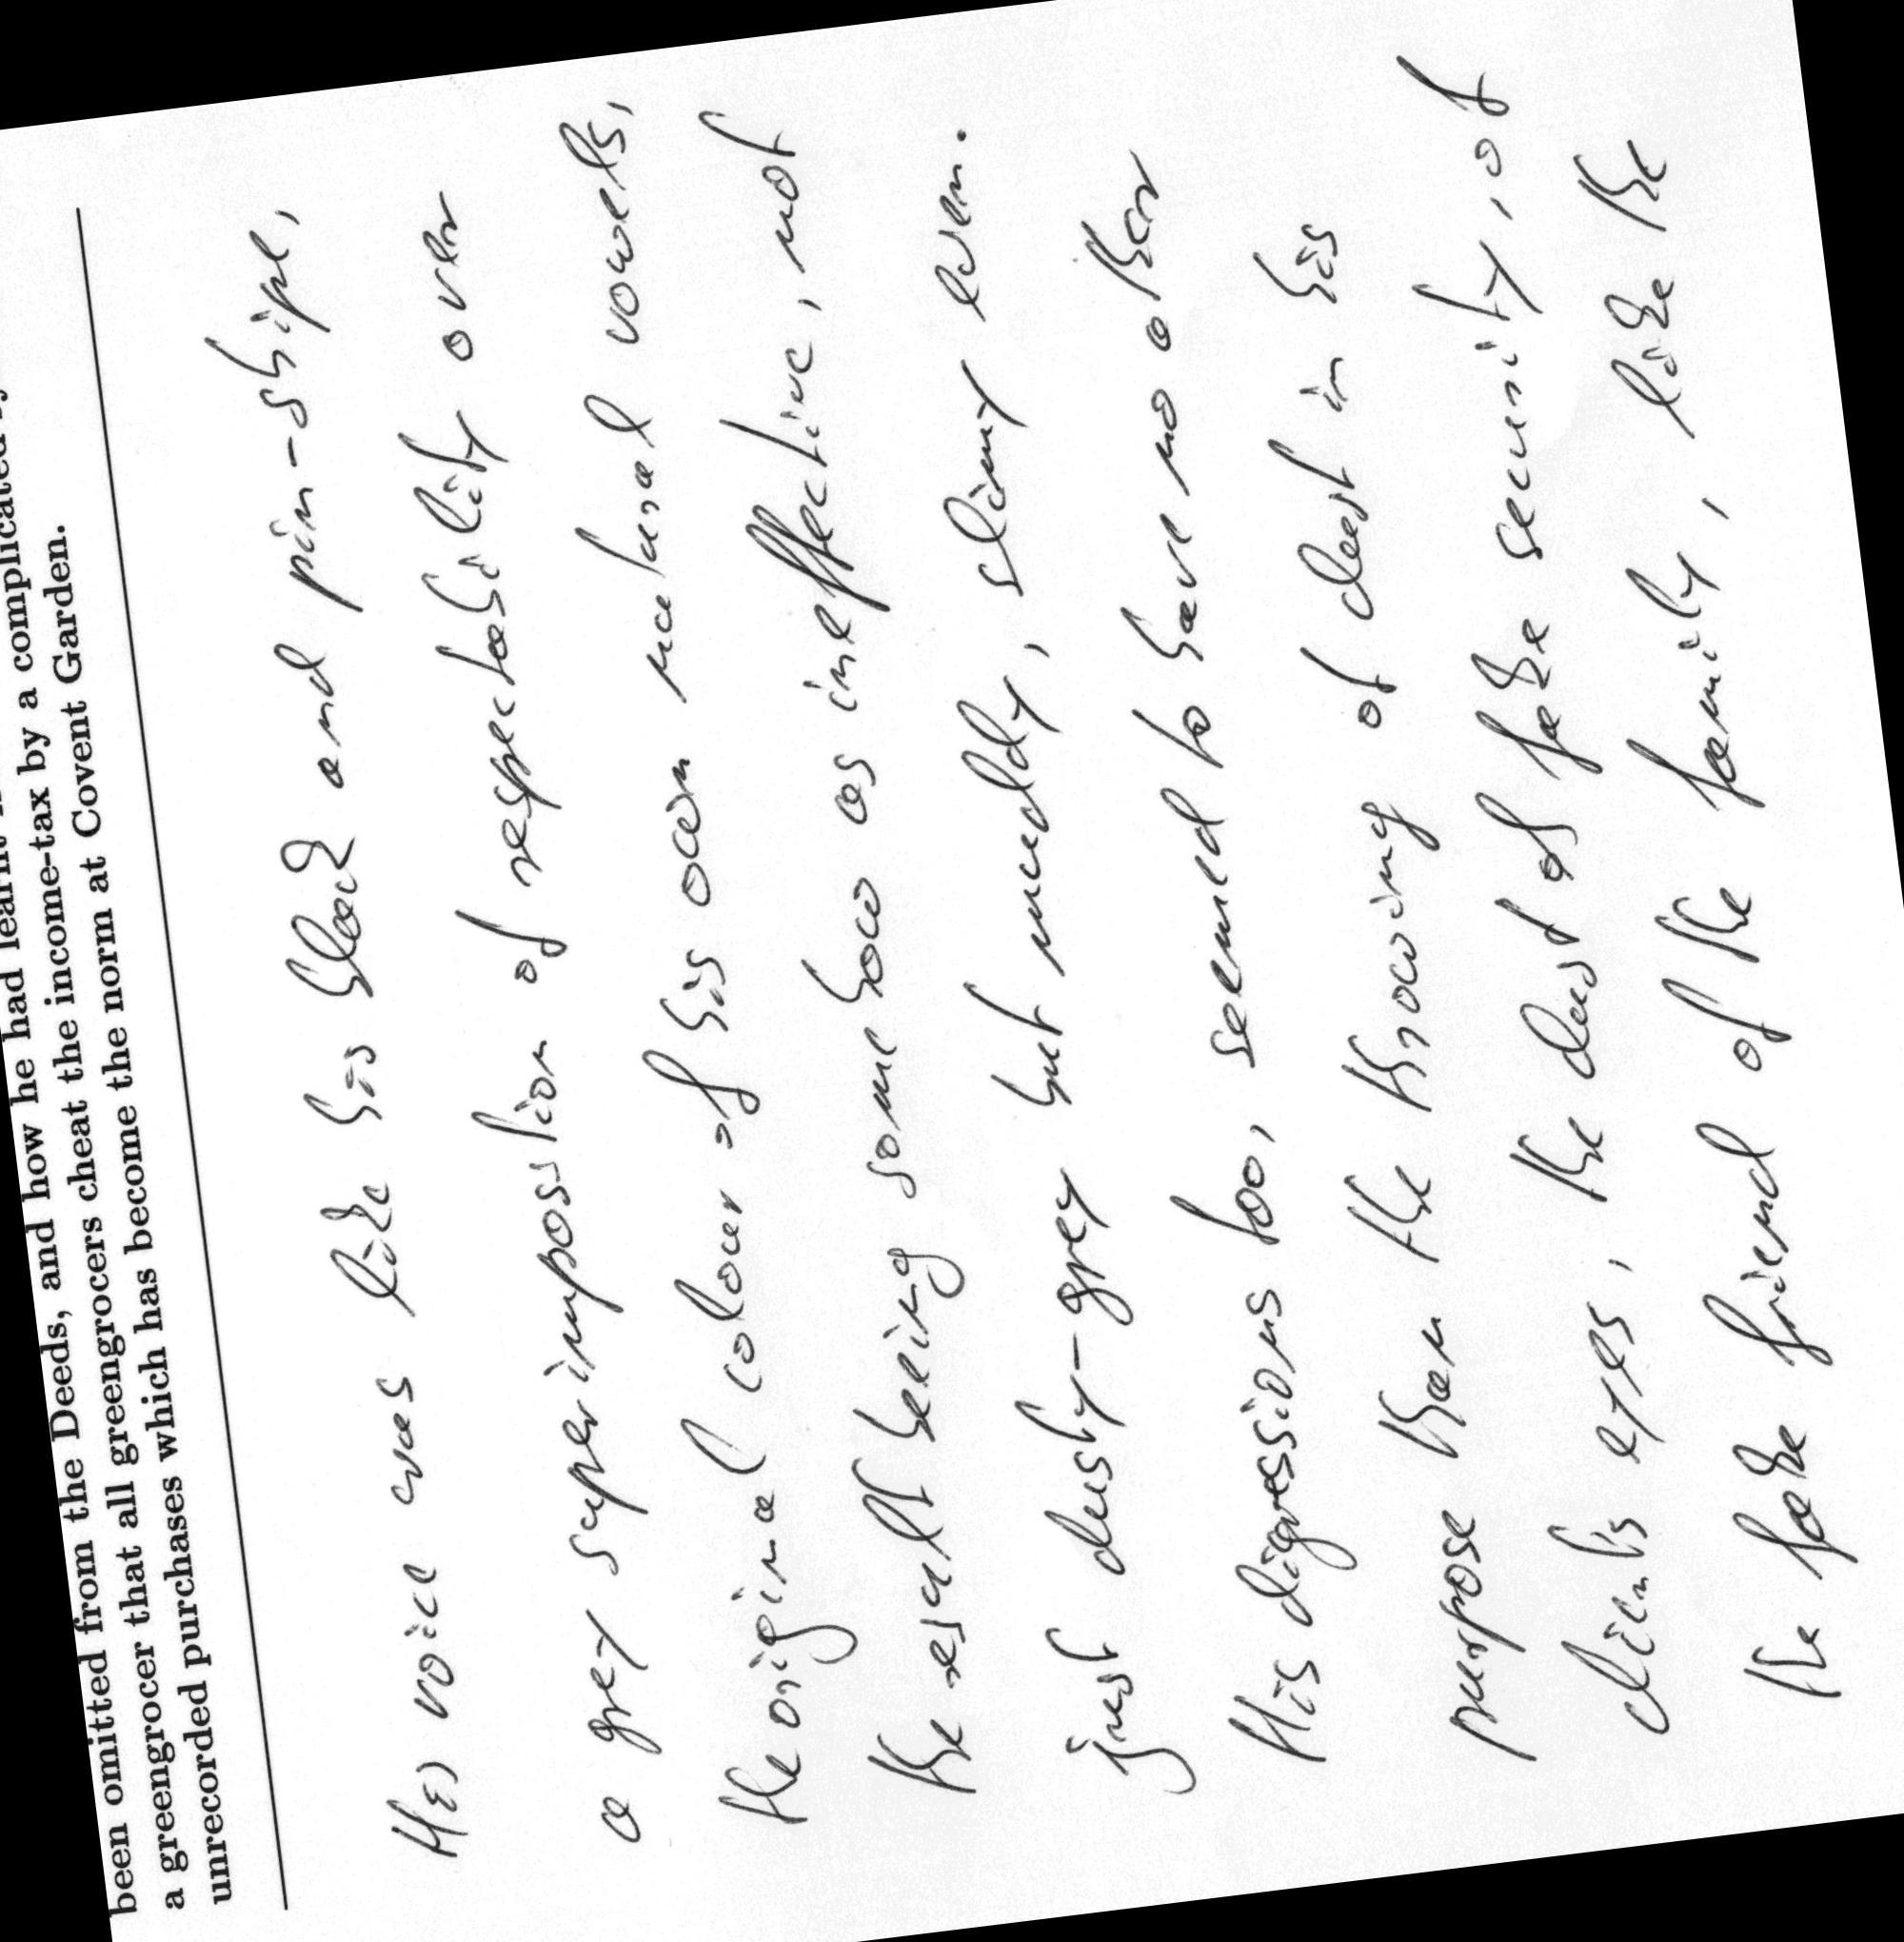 been omitted from the Deeds, and how he had learnt
a greengrocer that all greengrocers cheat the income-tax by a complicated
unrecorded purchases which has become the norm at Covent Garden.
His voice was like his black and pin-stripe,
a grey superimposition of respectability over
the original colour of his own natural vowels,
the result being somehow as ineffective, not
just dusty-grey but muddy, slimy even.
His digressions too, seemed to have no other
purpose than the throwing of dust in his
clients eyes, the dust of fake security, of
the fake friend of the family, like the